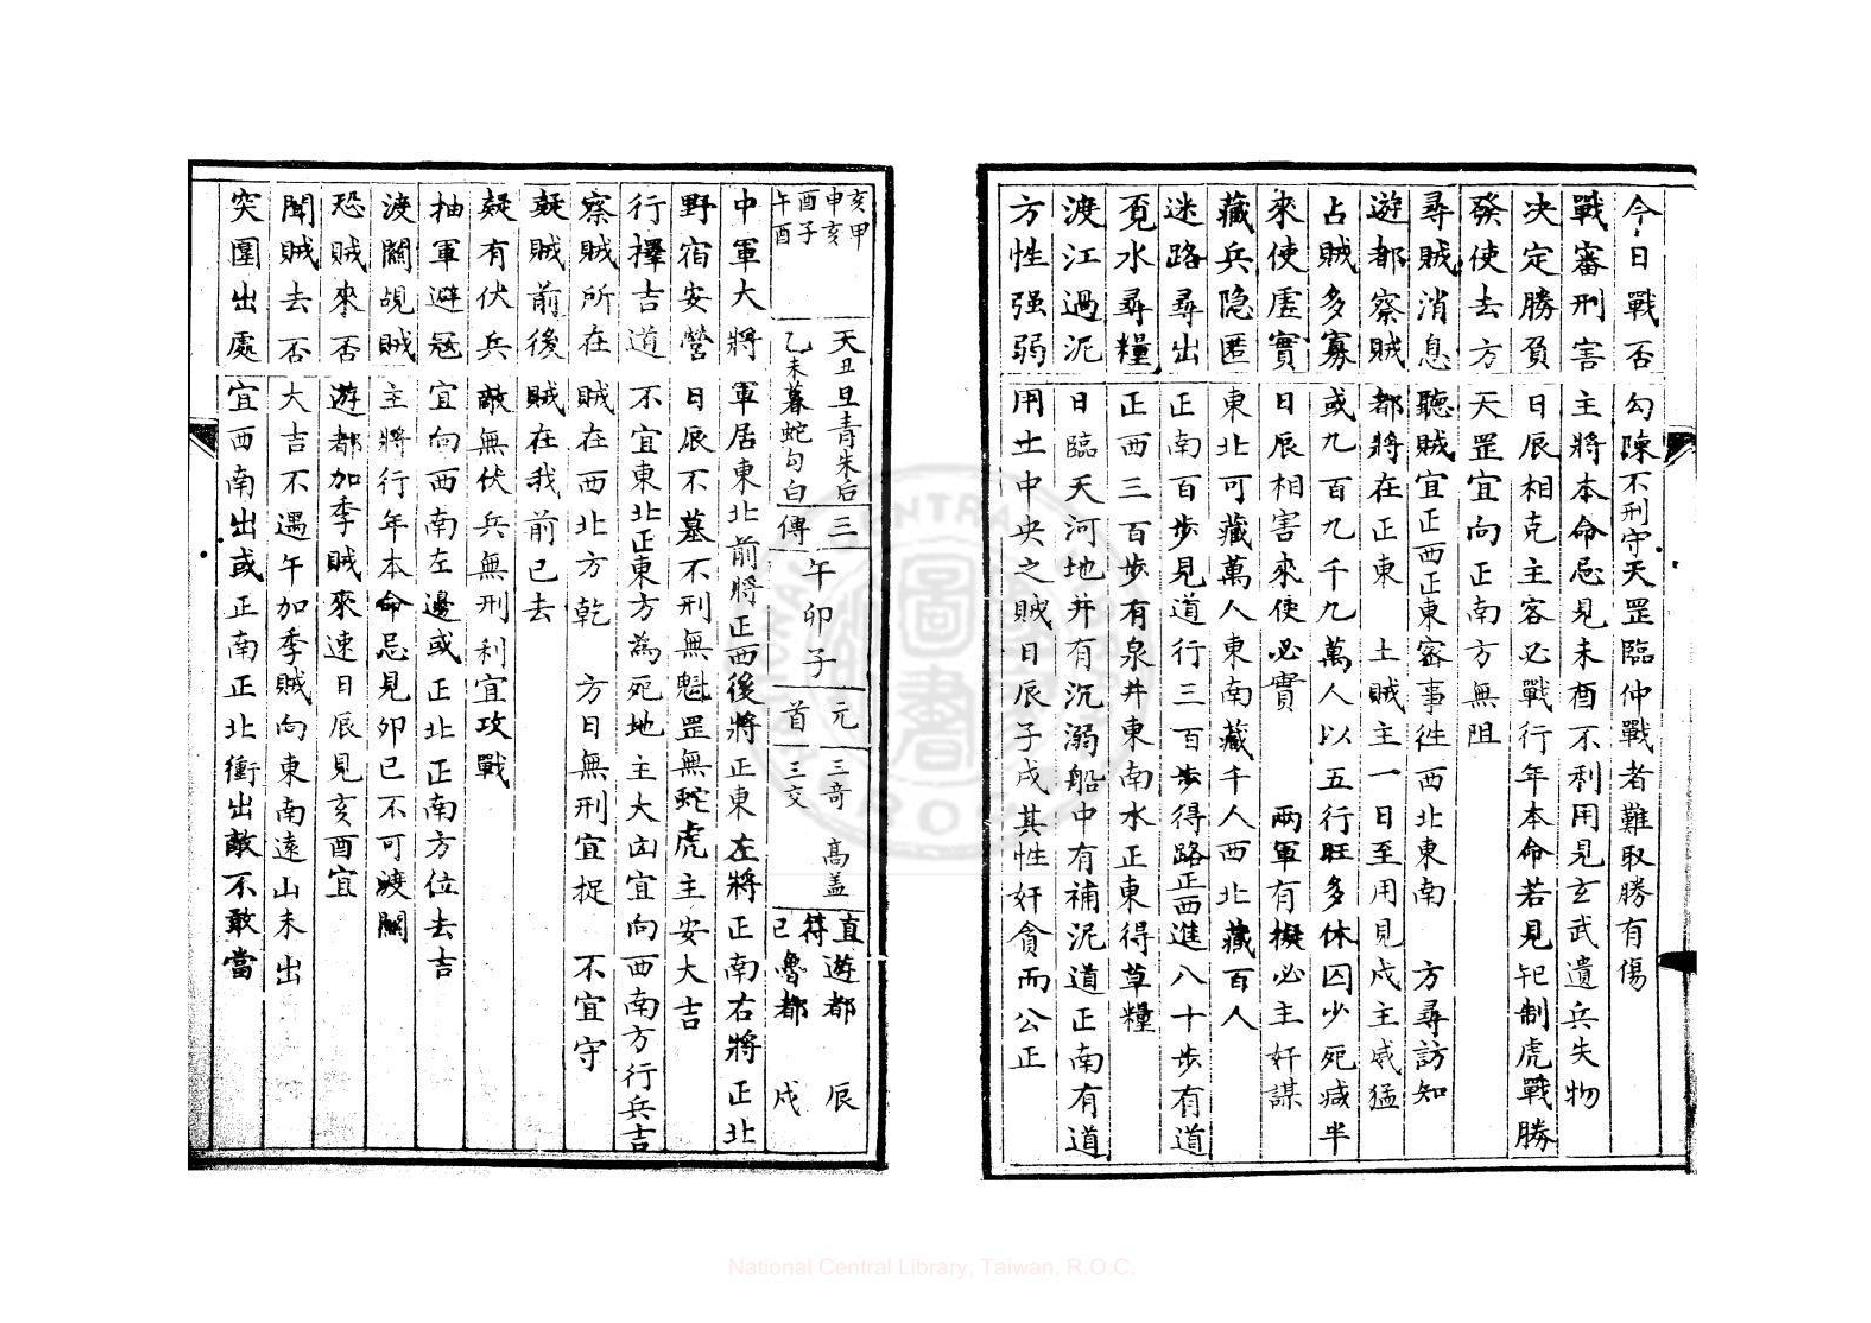 今日戰否 勾陳不刑守天罡臨仲戰者難取勝有傷
戰審刑害 主將本命忌見未酉不利用見玄武遺兵失物
決定勝負 日辰相克主客必戰行年本命若見制虎戰勝
發使去方 天罡宜向正南方無阻
尋賊消息 聽賊宜正西正東審事徃西北東南 方尋訪知
遊都察賊 都將在正東 土賊主一日至用見戍主威猛
占賊多寡 或九百九千九萬人以五行旺多休囚少死减半
來使虛實 日辰相害來使必實 兩軍有擬必主奸謀
藏兵隐匿 東北可藏萬人東南藏千人西北藏百人
迷路尋出 正南百步見道行三百步得路正西進八十步有道
覓水尋糧 正西三百步有泉井東南水正東得草糧
渡江過泥 日臨天河地井有沉溺船中有補泥道正南有道
方性强弱 用土中央之賊日辰子戌其性奸貪而公正
亥甲
申亥
酉子
午酉
天丑旦青朱后
乙未暮蛇勾白
三
傳
午卯子
元
首
三竒 高盖
三交
直
符
巳
遊都 辰
魯都 戍
中軍大將 軍居東北前將正西後將正東左將正南右將正北
野宿安營 日辰不墓不刑無魁罡無蛇虎主安大吉
行擇吉道 不宜東北正東方為死地主大凶宜向西南方行兵吉
察賊所在 賊在西北方乾 方日無刑宜捉 不宜守
疑賊前後 賊在我前已去
疑有伏兵 敵無伏兵無刑利宜攻戰
抽軍避冦 宜向西南左邊或正北正南方位去吉
渡關覘賊 主將行年本命忌見卯巳不可渡關
恐賊來否 遊都加季賊來速日辰見亥酉宜
聞賊去否 大吉不遇午加季賊向東南遠山未出
突圍出處 宜西南出或正南正北衝出敵不敢當
National Central Library, Taiwan, R.O.C.